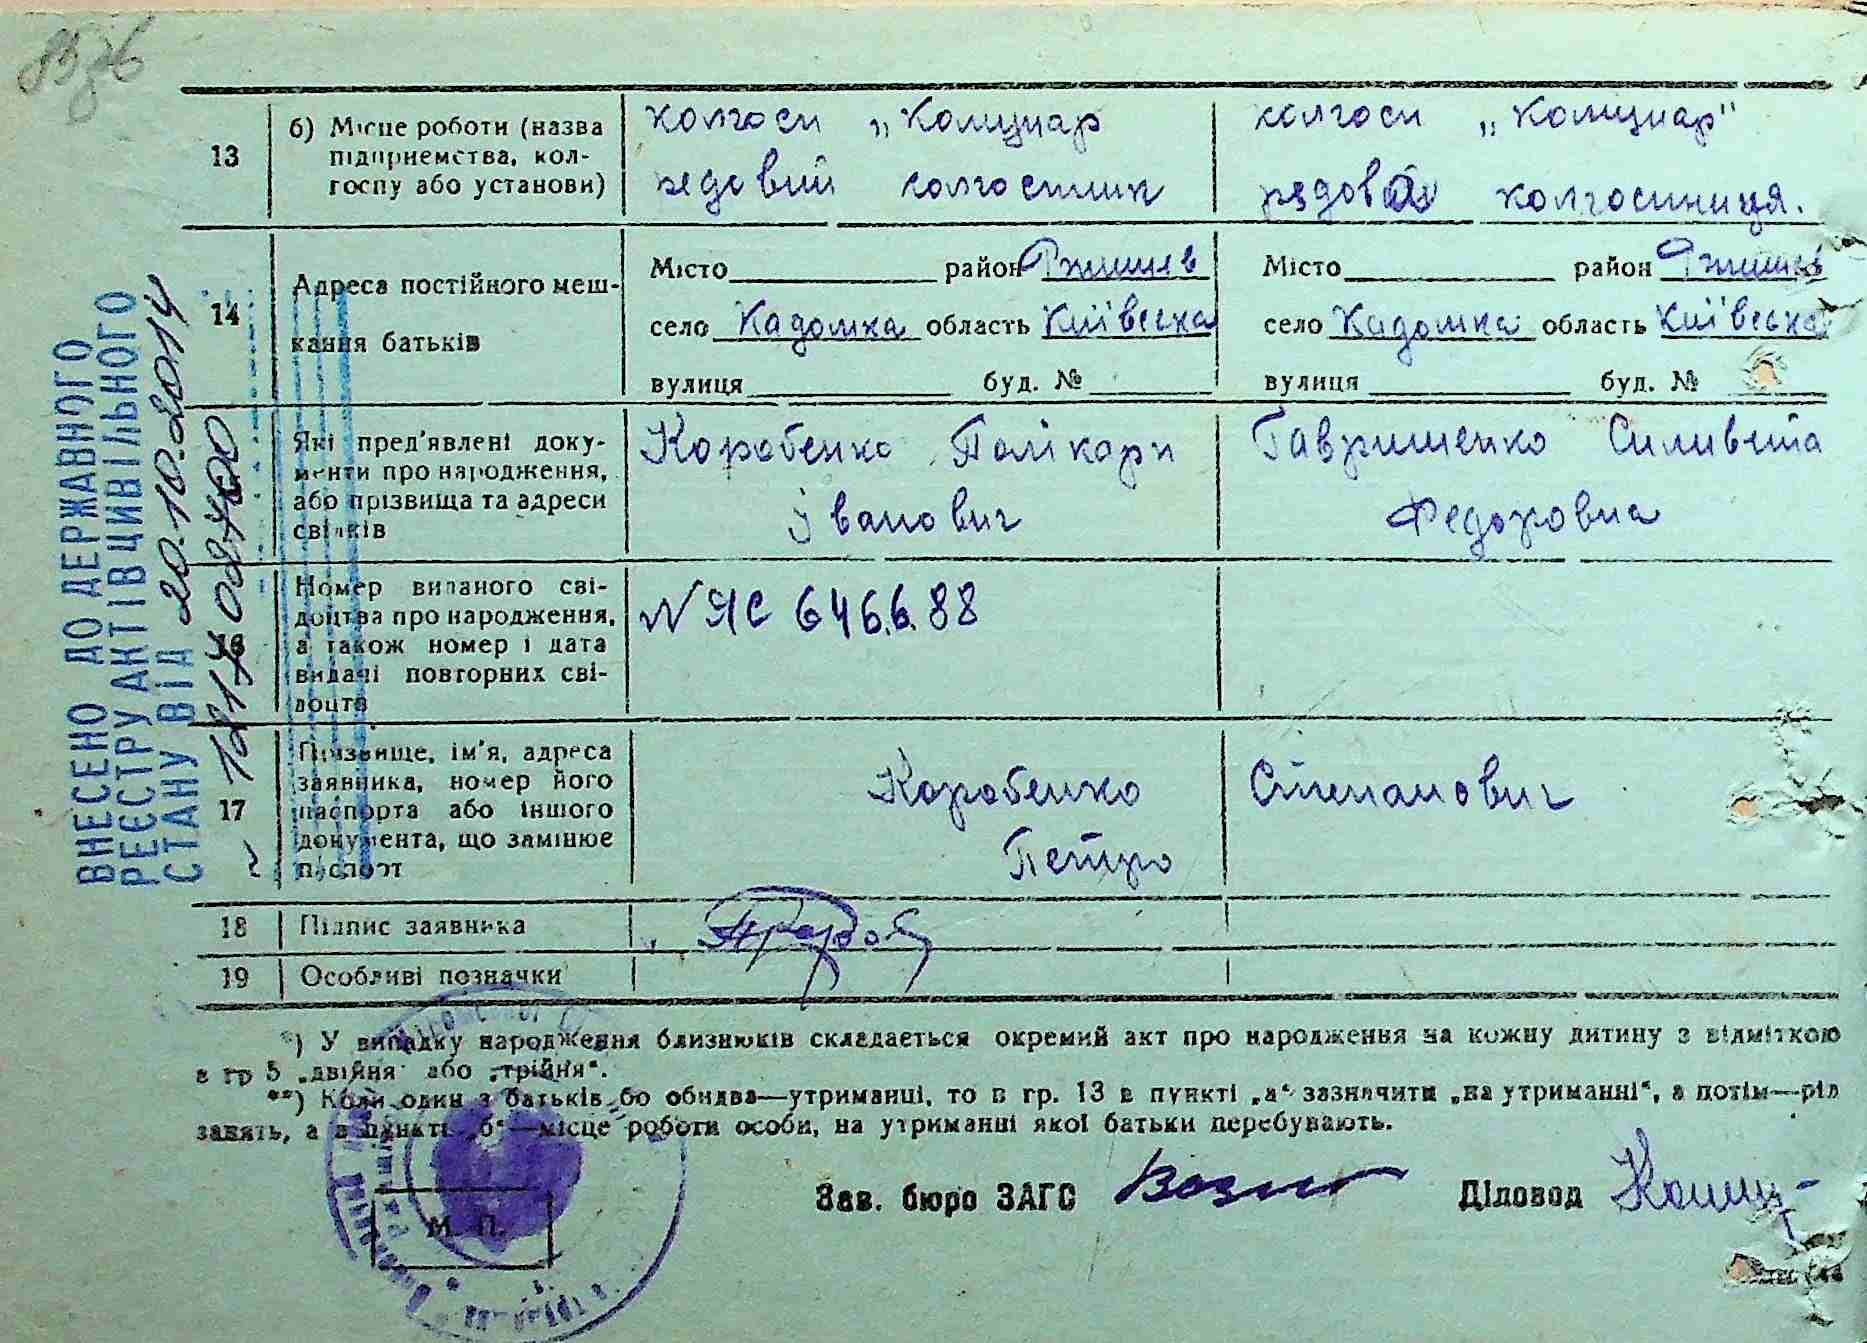 13
б) Місце роботи (назва
підприємства, кол-
госпу або установи)
колгосп „Комунар
рядовий колгоспник
колгосп „Комунар"
рядова колгоспниця.
14
Адреса постійного меш-
кання батьків
Місто район Ржищев
село Кадомка область Київська
вулиця буд. №
Місто район Ржищев
село Кадомка область Київська
вулиця буд. №
Які пред'явлені доку-
менти про народження,
або прізвища та адреси
свідків
Коробенко Полікарп
Іванович
Гавришенко Силивета
Федоровна
16
Номер виданого сві-
доцтва про народження,
а також номер і дата
видачі повторних сві-
доцтв
N ЯС 646688
17
Прізвище, ім'я, адреса
заявника, номер його
паспорта або іншого
документа, що замінює
паспорт
Коробенко Степанович
Петро
18
Підпис заявника
19
Особливі позначки
*) У випадку народження близнюків складається окремий акт про народження на кожну дитину з відміткою
в гр 5 „двійня" або „трійня".
**) Коли один з батьків бо обидва—утриманці, то в гр. 13 в пункті „а" зазначити „на утриманні", а потім—рід
занять, а в пункті „б"—місце роботи особи, на утриманні якої батьки перебувають.
Зав. бюро ЗАГС
Діловод
М. П.
ВНЕСЕНО ДО ДЕРЖАВНОГО
РЕЄСТРУ АКТІВ ЦИВІЛЬНОГО
СТАНУ ВІД 20.10.2014